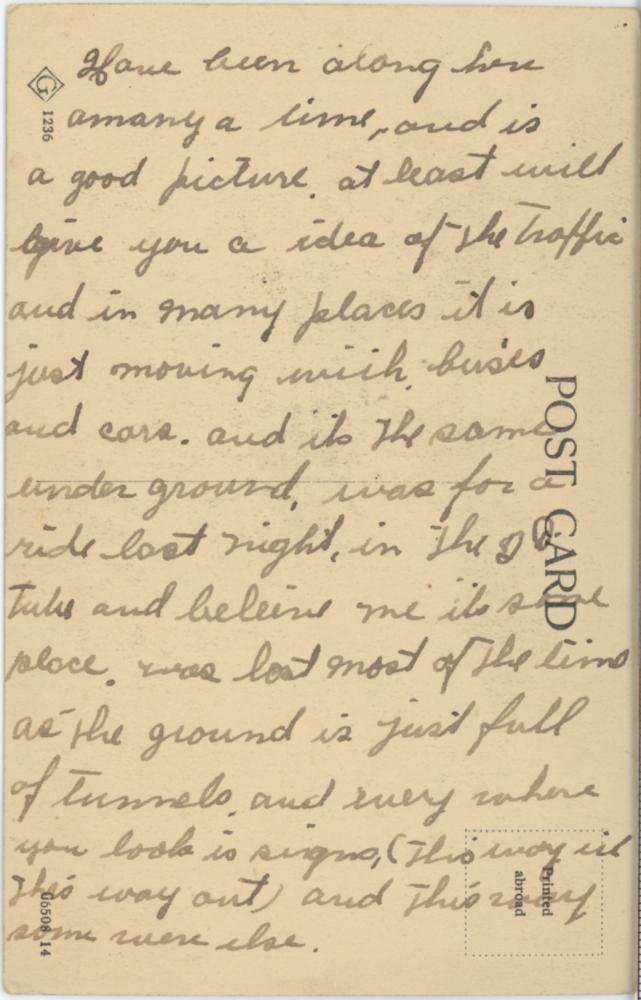 Have been along here
amany a time, and is
a good picture. at least will
give you a idea of the traffic
and in many places it is
just moving with buses
and cars. and its the same
under ground, was for a
ride last night, in the
tube and beleive me its some
place. was lost most of the time
as the ground is just full
of tunnels, and every where
you look is signs, (This way in
This way out) and This way
some were else.
POST CARD
Printed
abroad
G
1236
G6508-14